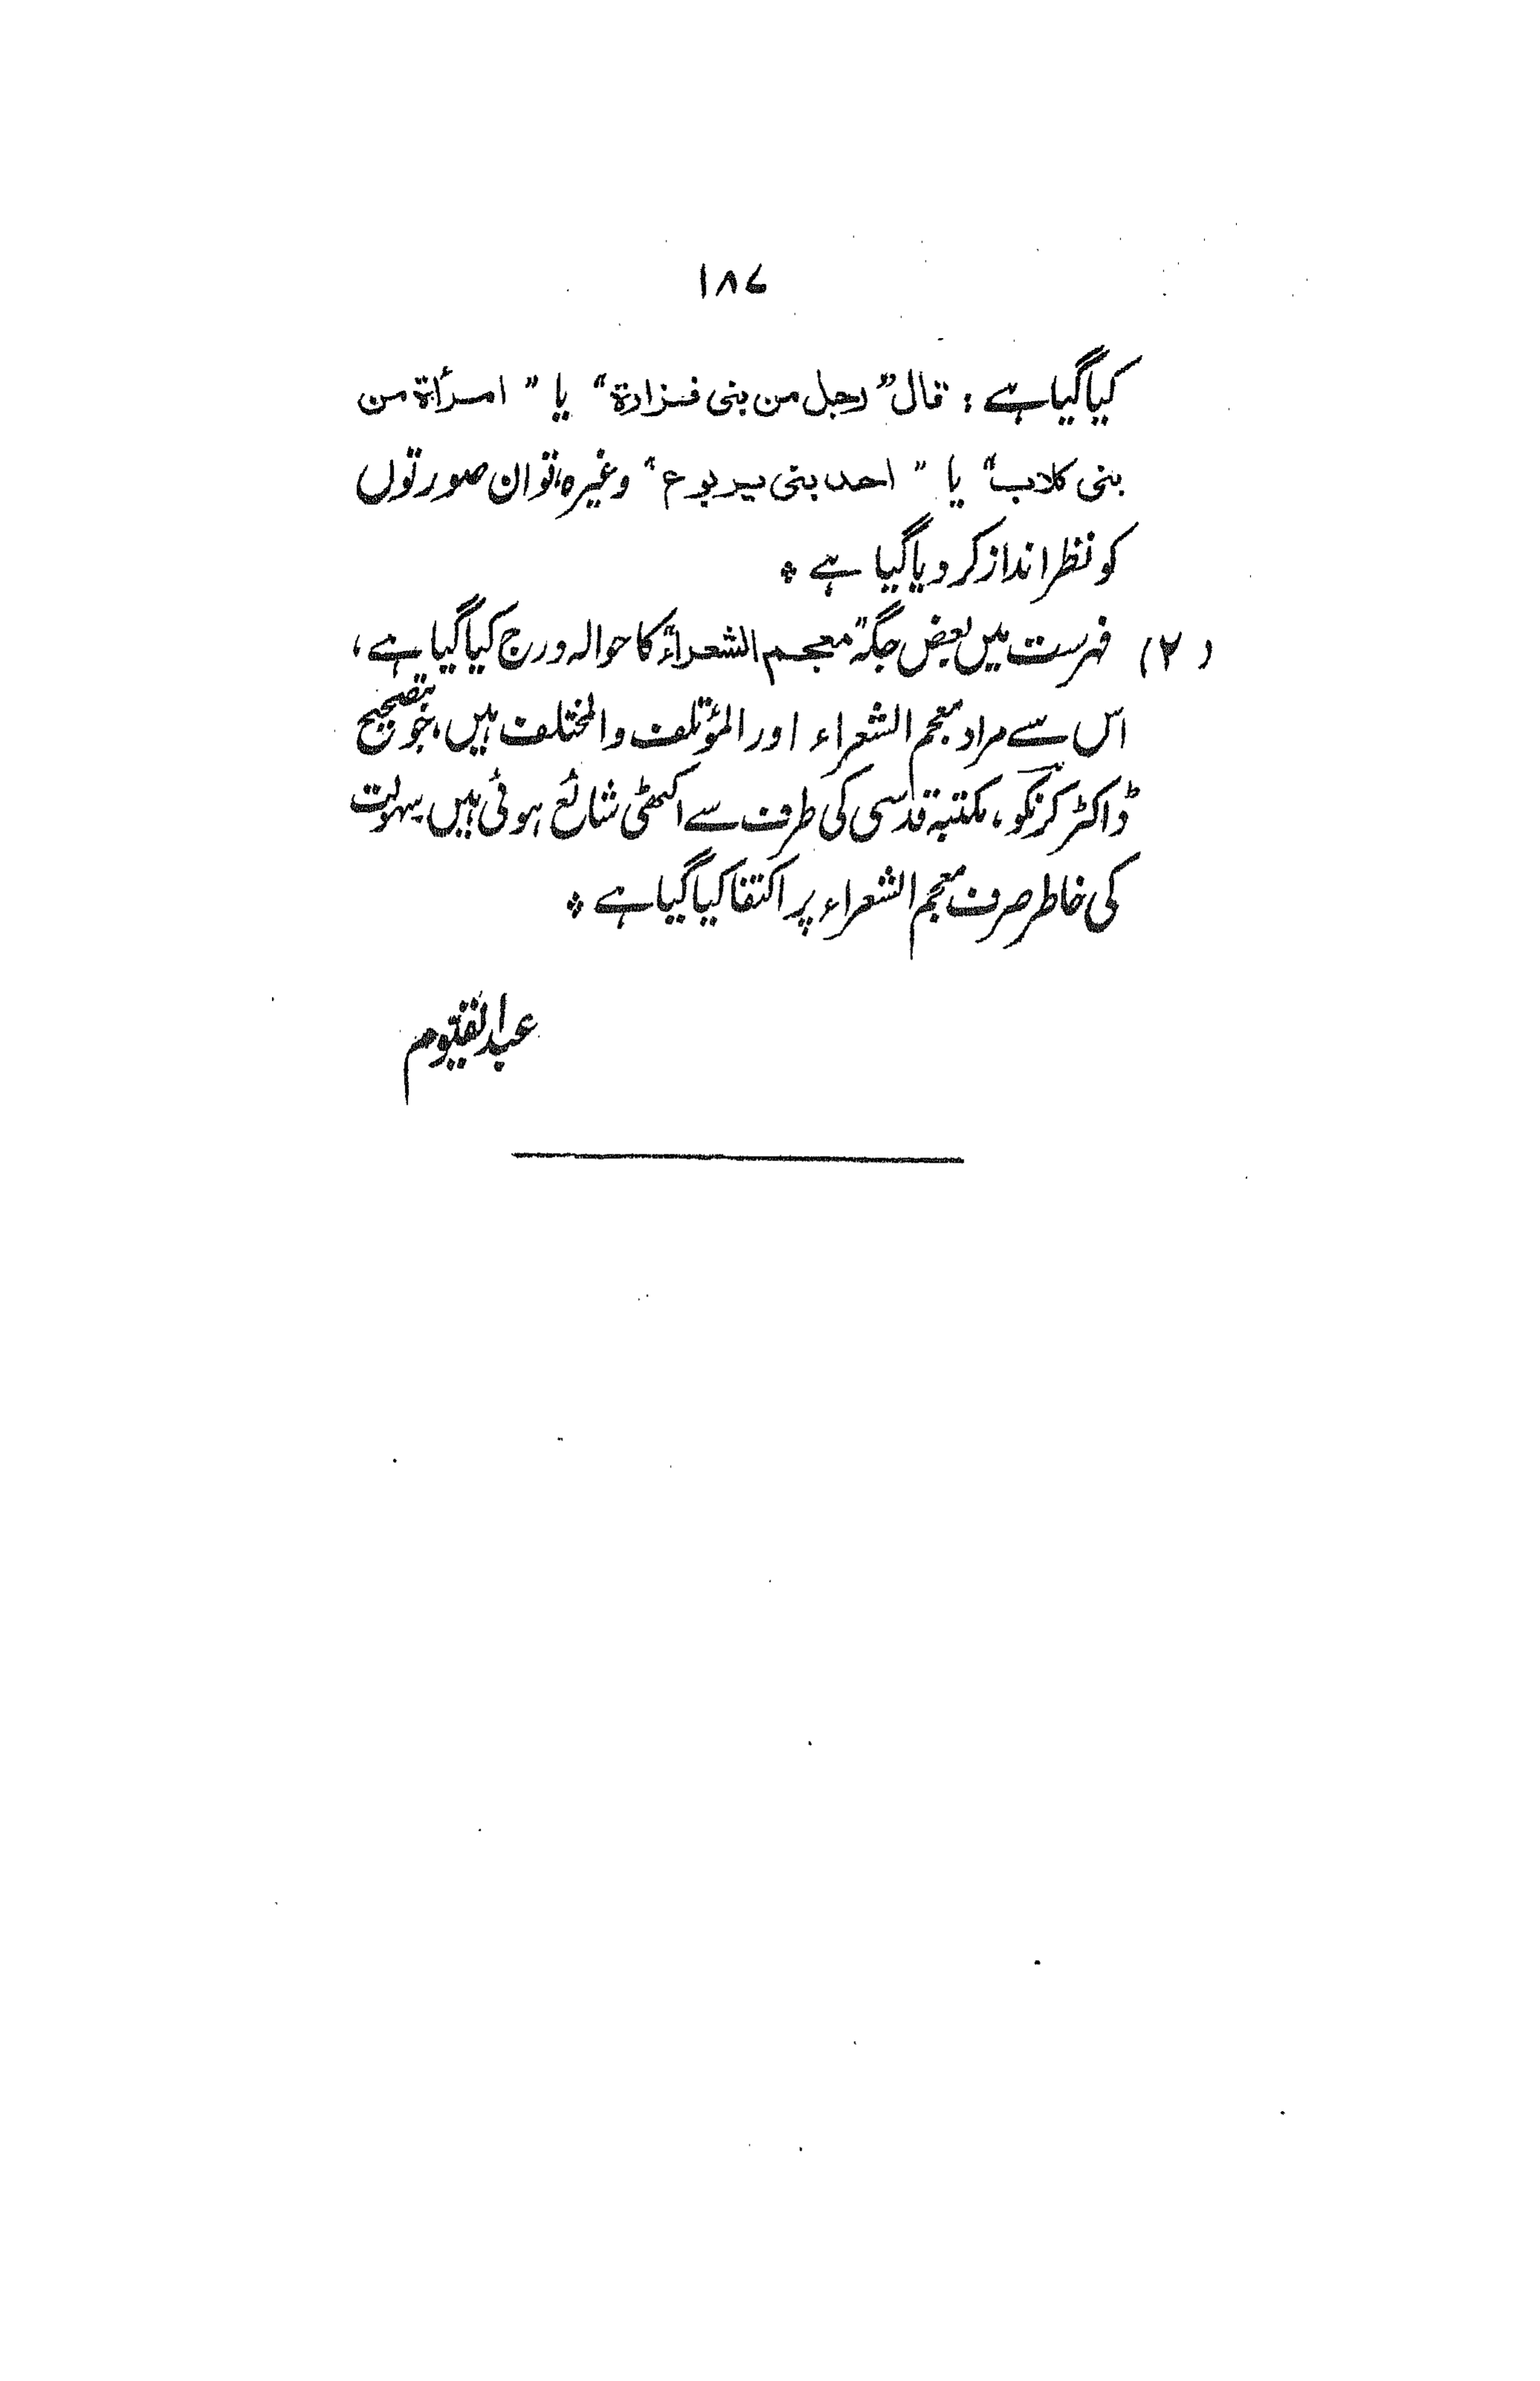 ۱۸۷
کیا گیا ہے : قال ”رجل من بنی فزارة“ یا ” امرأة من
بنی کلاب“ یا ” احد بنی یربوع“ وغیرہ، تو ان صورتوں
کو نظر انداز کر دیا گیا ہے ٭
(۲) فہرست میں بعض جگہ ”معجم الشعراء“ کا حوالہ درج کیا گیا ہے،
اس سے مراد معجم الشعراء اور المؤتلف والمختلف ہیں، جو بتصحیح
ڈاکٹر کرنکو، مکتبۃ قدسی کی طرف سے اکٹھی شائع ہوئی ہیں سہولت
کی خاطر صرف معجم الشعراء پر اکتفا کیا گیا ہے ٭
عبد القیّوم